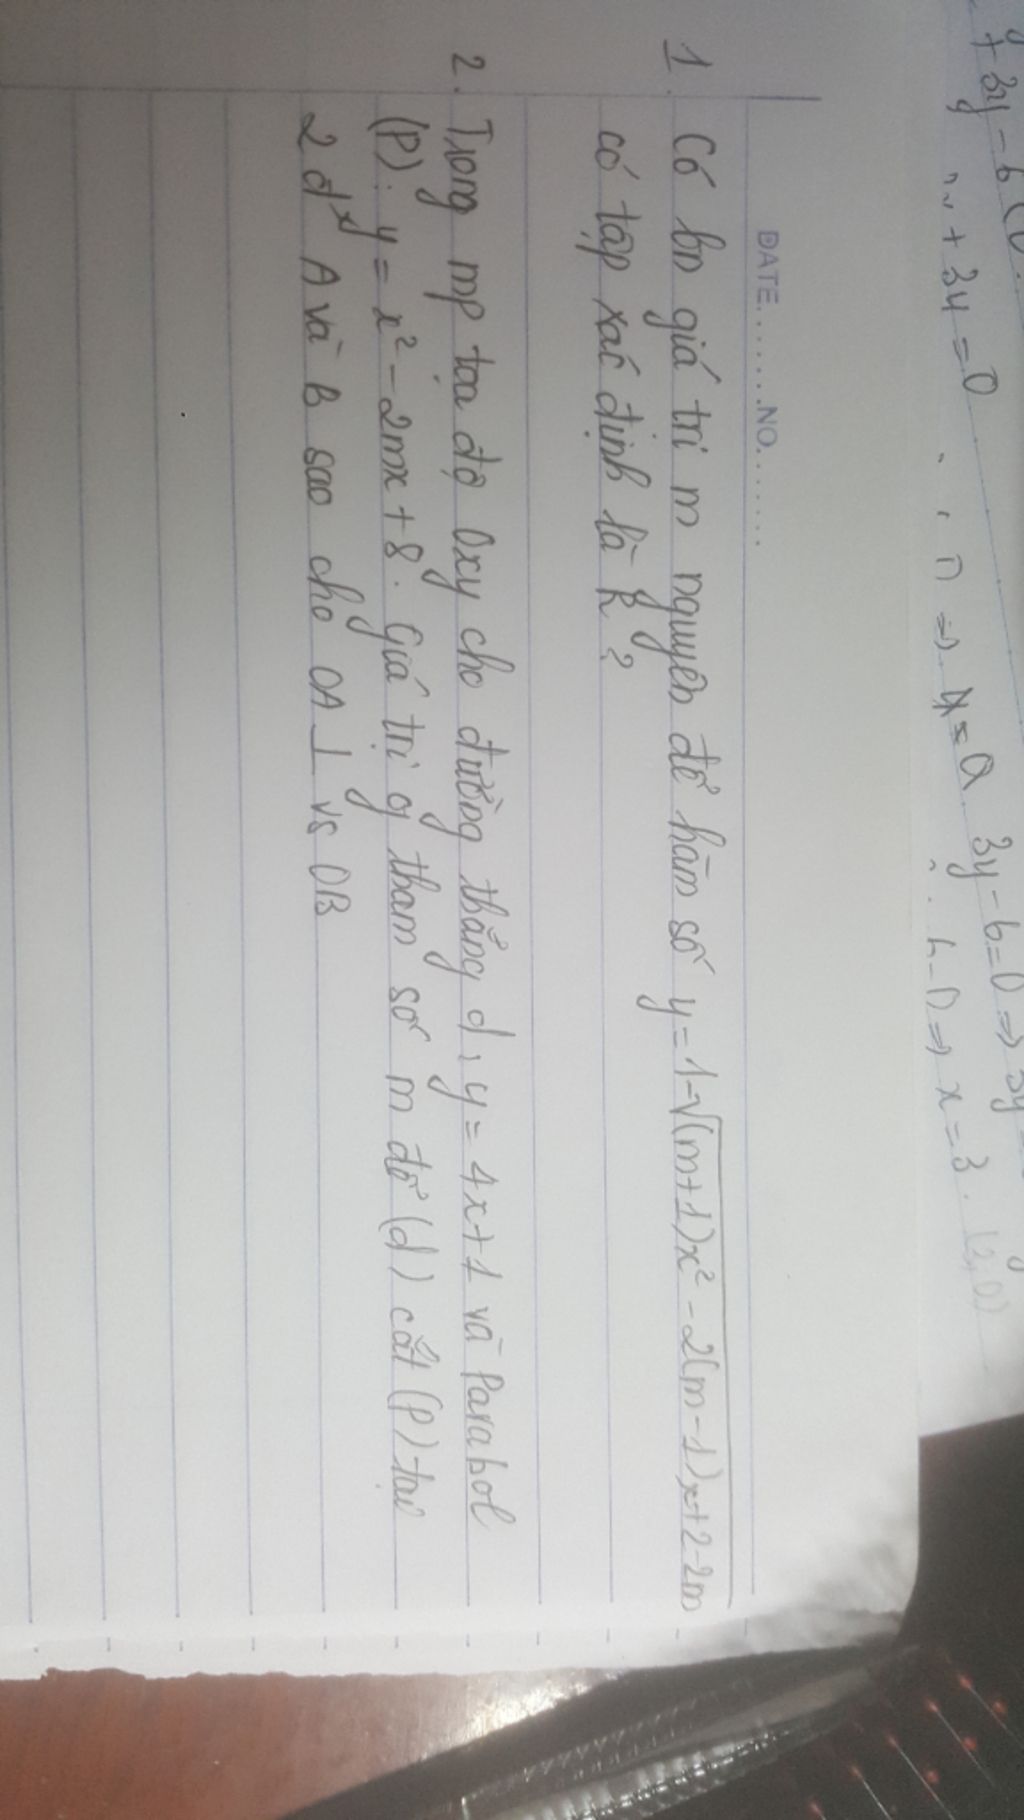 + 3y - 6
+ 3y = 0
3y - 6 = 0 ⇒ 3y
⇒ x = 3.
DATE.......NO.......
1. Có bn giá trị m nguyên để hàm số y = 1-√(m+1)x² - 2(m-1)x+2-2m
có tập xác định là R?
2. Trong mp tọa độ Oxy cho đường thẳng d, y = 4x+1 và Parabol
(P): y = x² - 2mx + 8. Giá trị of tham số m để (d) cắt (P) tại
2 đ' A và B sao cho OA ⊥ vs OB